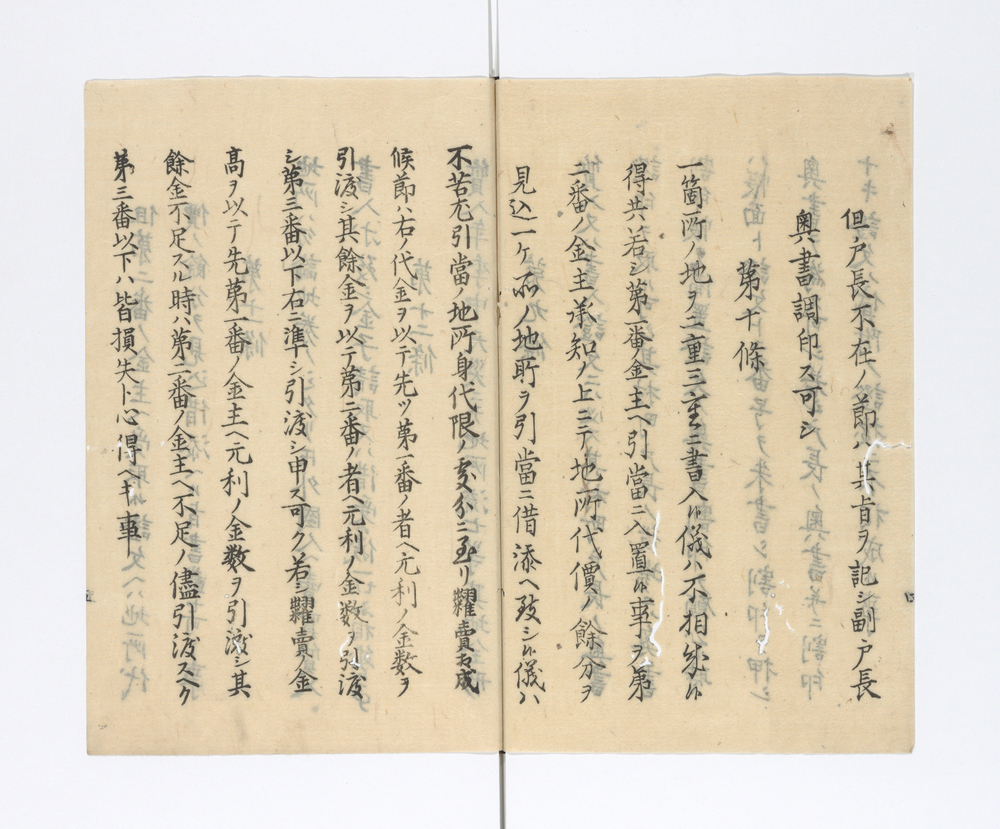 但戸長不在ノ節ハ其旨ヲ記シ副戸長
奥書調印ス可シ
第十條
一箇所ノ地ヲ二重三重ニ書入ル儀ハ不相成
得共若シ第一番ノ金主ヘ引當ニ入置ル事ヲ第
二番ノ金主承知ノ上ニテ地所代價ノ餘分ヲ
見込一ケ所ノ地所ヲ引當ニ借添ヘ致シル儀ハ
不苦尤引當ノ地所身代限ノ處分ニ至リ糶賣成
候節ハ右ノ代金ヲ以テ先ツ第一番ノ者ヘ元利ノ金数ヲ
引渡シ其餘金ヲ以テ第二番ノ者ヘ元利ノ金数ヲ引渡
シ第三番以下右ニ準シ引渡シ申ス可ク若シ糶賣ノ金
高ヲ以テ先第一番ノ金主ヘ元利ノ金数ヲ引渡シ其
餘金不足スル時ハ第二番ノ金主ヘ不足ノ儘引渡スヘク
第三番以下ハ皆損失ト心得ヘキ事